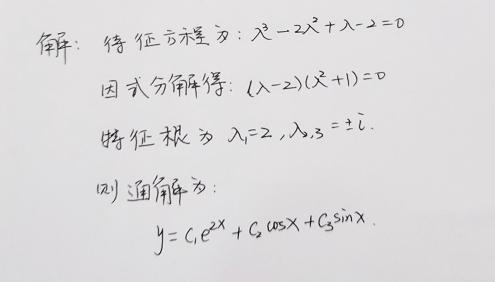 解：特征方程为：λ³-2λ²+λ-2=0
因式分解得：(λ-2)(λ²+1)=0
特征根为 λ₁=2，λ₂,₃=±i.
则通解为：
y=C₁e²ˣ+C₂cosx+C₃sinx.